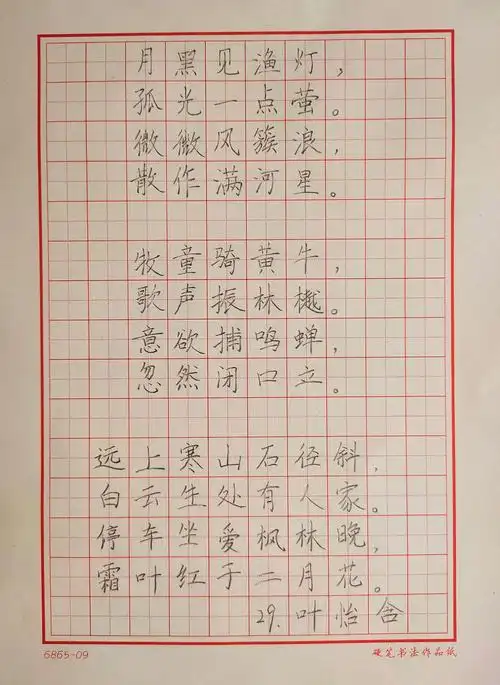 月黑见渔灯，
孤光一点萤。
微微风簇浪，
散作满河星。
牧童骑黄牛，
歌声振林樾。
意欲捕鸣蝉，
忽然闭口立。
远上寒山石径斜，
白云生处有人家。
停车坐爱枫林晚，
霜叶红于二月花。
29.叶怡含
6865-09 硬笔书法作品纸